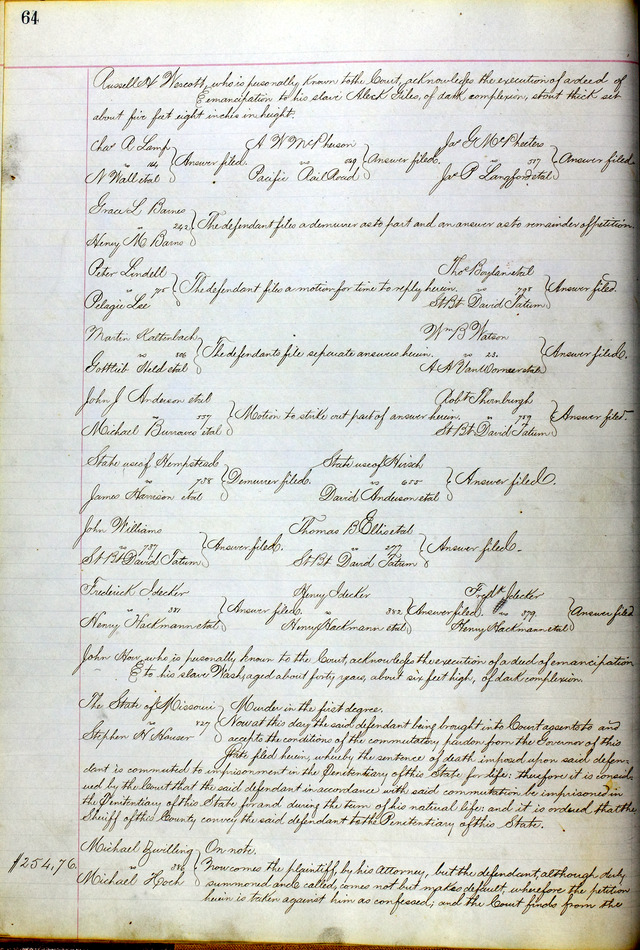 64
Russell H Wescott, who is personally known to the Court, acknowledges the execution of a deed of
emancipation to his slave Aleck Giles, of dark complexion, stout thick set
about five feet eight inches in height.
Chas A Lamp A W McPherson Jas G McPheeters
vs Answer filed. vs 69 Answer filed. vs Answer filed.
N Wall et al Pacific Rail Road Jas P Langford et al
Grace L Barnes
vs 242 The defendant files a demurrer as to part and an answer as to remainder of petition.
Henry M Barns
Peter Lindell Thos Boylan et al
vs 75 The defendant files a motion for time to reply herein. vs 798 Answer filed
Pelagie Lee St Bt David Tatum
Martin Kattenbach Wm B Watson
vs 186 The defendants file separate answers herein. vs 23. Answer filed.
Gottleib Held et al A A VanWormer et al
John J Anderson et al Robt Thornburgh
vs 557 Motion to strike out part of answer herein. vs 789 Answer filed.
Michael Burrows et al St Bt David Tatum
State use of Hempstead State use of Hirsch
vs 738 Demurrer filed. vs 655 Answer filed.
James Harrison et al David Anderson et al
John Williams Thomas B Ellis et al
vs 787 Answer filed. vs 277 Answer filed.
St Bt David Tatum St Bt David Tatum
Frederick Idecker Henry Idecker Fredk Idecker
vs 381 Answer filed. vs 382 Answer filed. vs 379 Answer filed
Henry Hackmann et al Henry Hackmann et al Henry Hackmann et al
John How, who is personally known to the Court, acknowledges the execution of a deed of emancipation
to his slave Wash; aged about forty years, about six feet high, of dark complexion.
The State of Missouri Murder in the first degree.
vs 127 Now at this day the said defendant being brought into Court assents to and
Stephen H Hauser accepts the conditions of the commutatory pardon from the Governor of this
State filed herein, whereby the sentence of death imposed upon said defen-
dant is commuted to imprisonment in the Penitentiary of this State for life: therefore it is consid-
ered by the Court that the said defendant in accordance with said commutation be imprisoned in
the Penitentiary of this State for and during the term of his natural life: and it is ordered that the
Sheriff of this County convey the said defendant to the Penitentiary of this State.
Michael Zwilling On note.
$254,76. vs Now comes the plaintiff, by his Attorney, but the defendant, although duly
Michael Hoch summoned and called, comes not but makes default, wherefore the petition
herein is taken against him as confessed; and the Court finds from the